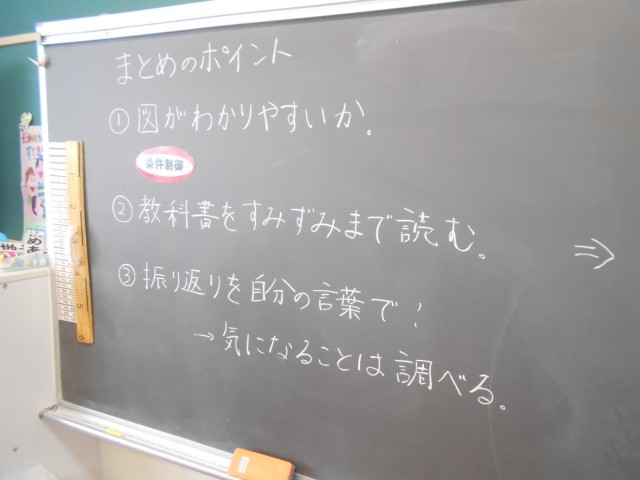 まとめのポイント
①図がわかりやすいか。
条件制御
②教科書をすみずみまで読む。
⇒
③振り返りを自分の言葉で!
→気になることは調べる。
1
2
3
4
5
6